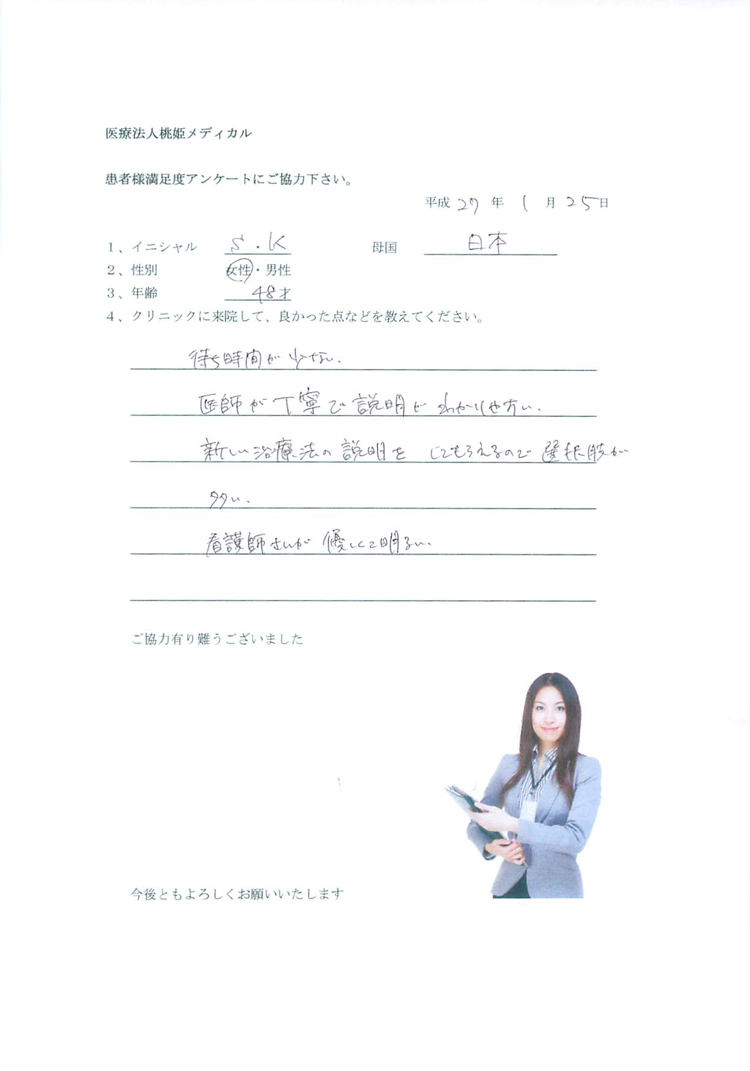 医療法人桃姫メディカル
患者様満足度アンケートにご協力下さい。
平成 27 年 1 月 25 日
1、イニシャル S.K 母国 日本
2、性別 女性・男性
3、年齢 48才
4、クリニックに来院して、良かった点などを教えてください。
待ち時間が少ない.
医師が丁寧で説明がわかりやすい.
新しい治療法の説明をしてもらえるので選択肢が
多い.
看護師さんが優しくて明るい.
ご協力有り難うございました
今後ともよろしくお願いいたします